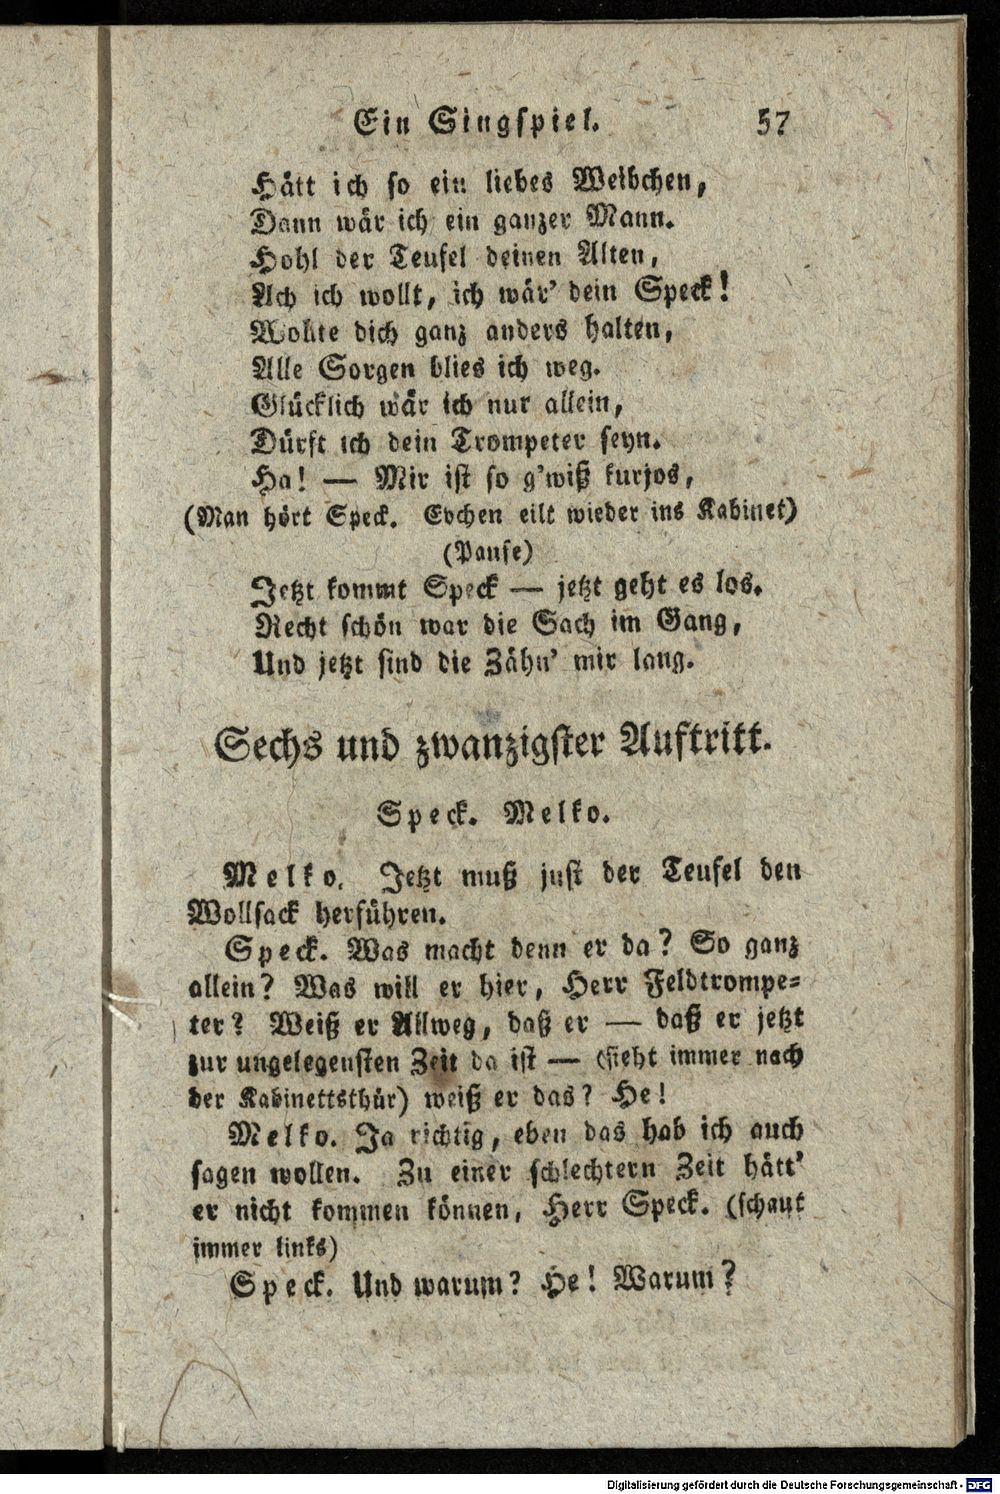 Ein Singspiel. 57
Hätt ich so ein liebes Weibchen,
Dann wär ich ein ganzer Mann.
Hohl der Teufel deinen Alten,
Ach ich wollt, ich wär' dein Speck!
Wollte dich ganz anders halten,
Alle Sorgen blies ich weg.
Glücklich wär ich nur allein,
Dürft ich dein Trompeter seyn.
Ha! — Mir ist so g'wiß kurjos,
(Man hört Speck. Evchen eilt wieder ins Kabinet)
(Pause)
Jetzt kommt Speck — jetzt geht es los.
Recht schön war die Sach im Gang,
Und jetzt sind die Zähn' mir lang.
Sechs und zwanzigster Auftritt.
Speck. Melko.
Melko. Jetzt muß just der Teufel den
Wollsack herführen.
Speck. Was macht denn er da? So ganz
allein? Was will er hier, Herr Feldtrompe-
ter? Weiß er Allweg, daß er — daß er jetzt
zur ungelegensten Zeit da ist — (sieht immer nach
der Kabinettsthür) weiß er das? He!
Melko. Ja richtig, eben das hab ich auch
sagen wollen. Zu einer schlechtern Zeit hätt'
er nicht kommen können, Herr Speck. (schaut
immer links)
Speck. Und warum? He! Warum?
Digitalisierung gefördert durch die Deutsche Forschungsgemeinschaft - DFG